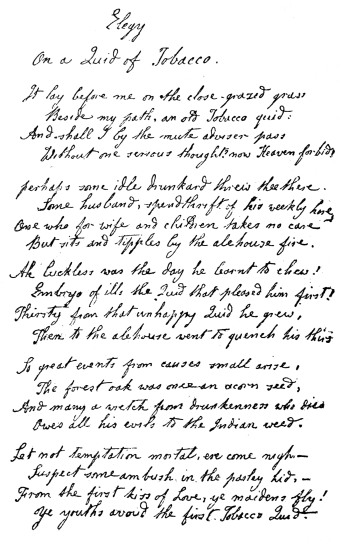 Elegy
On a Quid of Tobacco.
It lay before me on the close-grazed grass
Beside my path, an old Tobacco quid:
And shall I by the mute adviser pass
Without one serious thought? now Heaven forbid!
perhaps some idle drunkard threw thee there.
Some husband, spendthrift of his weekly hire,
One who for wife and children takes no care
But sits and tipples by the alehouse fire.
Ah luckless was the day he learnt to chew!
Embryo of ills the Quid that pleased him first!
Thirsty from that unhappy Quid he grew,
Then to the alehouse went to quench his thirs
So great events from causes small arise,
The forest oak was once an acorn seed,
And many a wretch from drunkenness who dies
Owes all his evils to the Indian weed.
Let not temptation mortal, ere come nigh—
Suspect some ambush in the parsley hid,—
From the first kiss of Love, ye maidens fly!
Ye youths avoid the first Tobacco Quid.